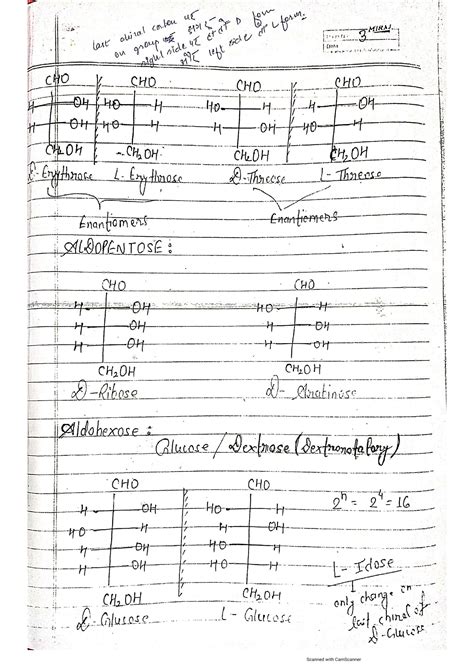 last chiral carbon पर
on group
right side पर
left side
3
MIRAJ
DATE
CHO CHO CHO CHO
H OH HO H HO H H OH
H OH HO H H OH HO H
CH₂OH CH₂OH CH₂OH CH₂OH
D-Erythrose L-Erythrose D-Threose L-Threose
Enantiomers Enantiomers
ALDOPENTOSE :
CHO CHO
H OH HO H
H OH H OH
H OH H OH
CH₂OH CH₂OH
D-Ribose D-Arabinose
Aldohexose :
Glucose / Dextrose (Dextronofatory)
CHO CHO
H OH HO H 2ⁿ = 2⁴ = 16
HO H H OH
H OH HO H
H OH HO H L-Idose
CH₂OH CH₂OH only change in
D-Glucose L-Glucose last chiral of
D-Glucose
Scanned with CamScanner